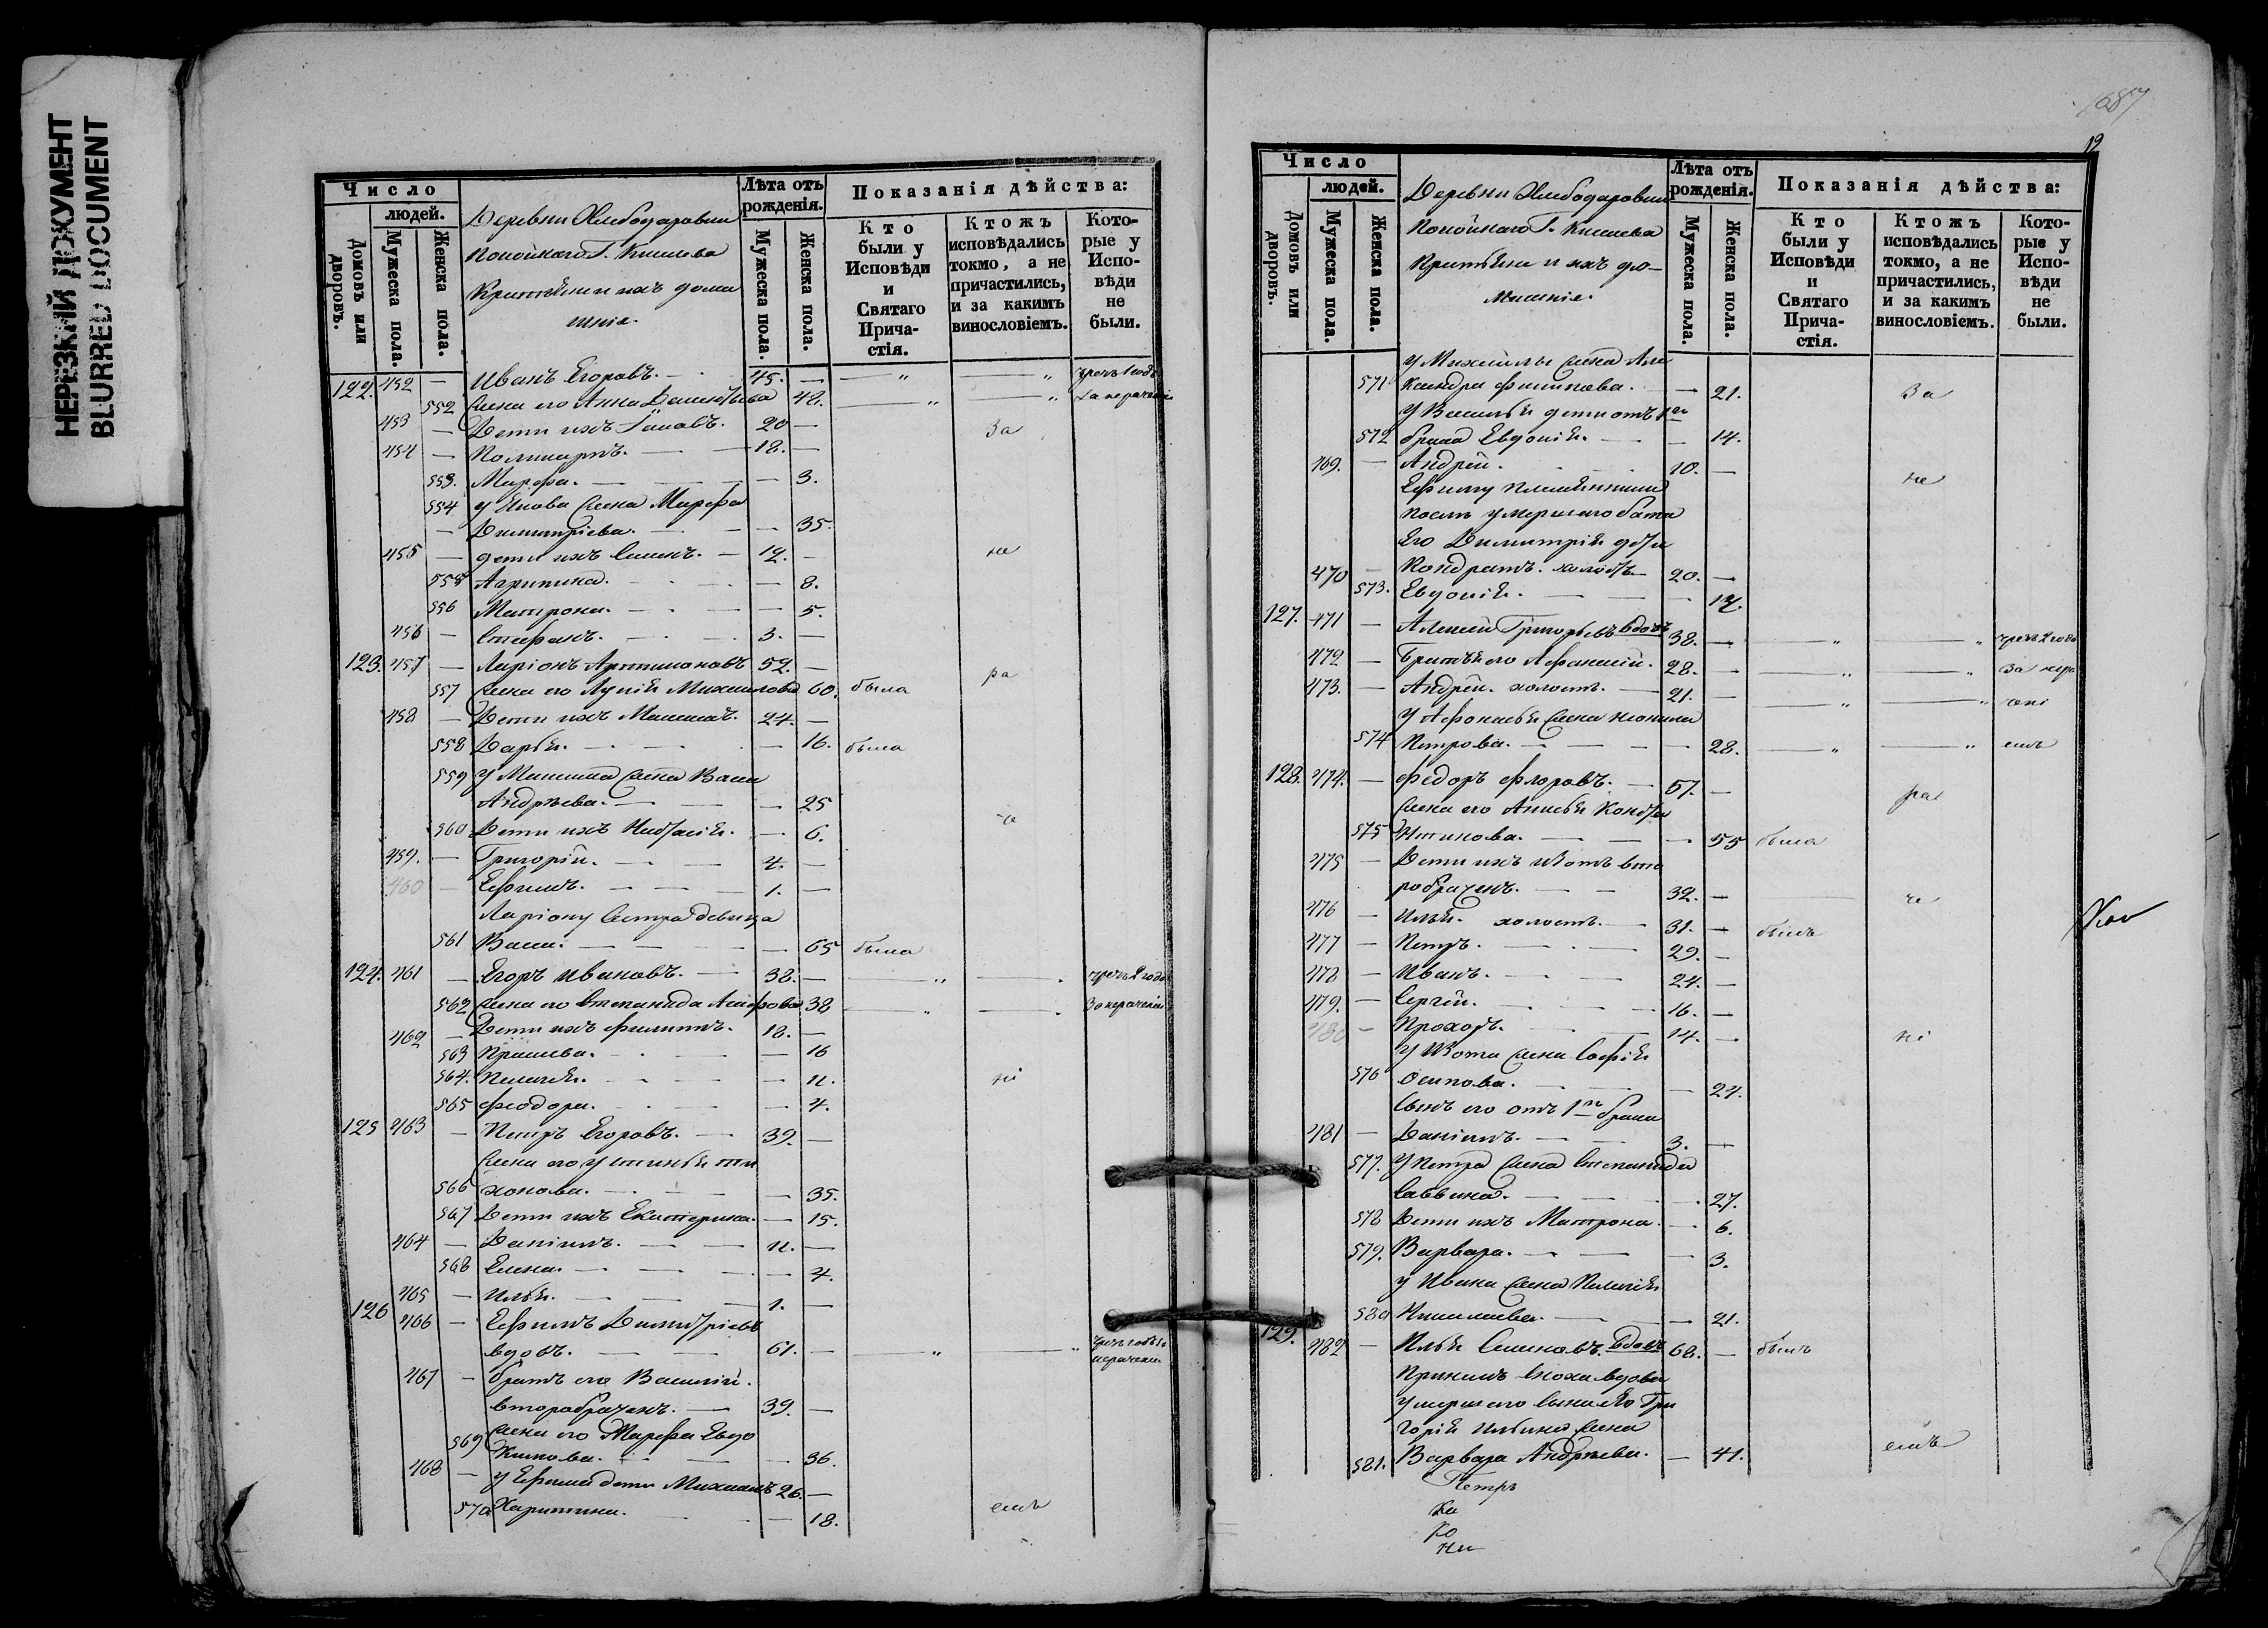 НЕРЕЗКИЙ ДОКУМЕНТ
BLURRED DOCUMENT
Число
людей.
Домовъ или дворовъ.
Мужеска пола.
Женска пола.
Деревни Хлебодаровки
Г. Кишева
Крестьяне и ихъ дома
шніе.
Лѣта отъ рожденія.
Мужеска пола.
Женска пола.
Показанія дѣйства:
Кто были у Исповѣди и Святаго Причастія.
Ктожъ исповѣдались токмо, а не причастились, и за какимъ винословіемъ.
Которые у Исповѣди не были.
122. 452 — Иванъ Егоровъ. — 45. —
552 Жена его Анна 48.
453 — Дети ихъ 20 — За
454 — Поликарпъ. — 18. —
553. Марфа. — 3.
554 у Жена Марфа
Димитріева. — 35.
455 — дети ихъ Семенъ. — 12. — не
555 Агрипина. — 8.
556 Матрона. — 5.
456 — Стефанъ. — 3. —
123. 457 — Ларіонъ Артимоновъ 52. — ра
557 Жена его Лукія Михаилова 60. была
458 — Дети ихъ Максимъ. 24. —
558 Дарья. — 16. была
559 у Максима Жена Васа
Андрѣева. — 25
560 Дети ихъ — 6.
459. — Григорій. — 4. —
460 — Ефимъ. — 1. —
Ларіону Сестра девица
561 Васа. — 65 была
124. 461 — Егоръ Ивановъ. — 38. —
562 Жена его Степанида 38
462 — Дети ихъ Филиппъ. 18. —
563 — 16
564. Пелагея. — 11. ні
565 Феодора. — 4.
125 463 — Петръ Егоровъ. — 39. —
Жена его Устинья Ти
566 хонова. — 35.
567 Дети ихъ Екатерина. — 15.
464 — Даніилъ. — 11. —
568 Елена. — 4.
465 — Илья. — 1. —
126 466 — Ефимъ Димитріевъ
вдовъ. — 61. —
467 — братъ его Василій.
второбраченъ. — 39. —
569 Жена его Марфа Евдо
кимова. — 36.
468 — у Ефима дети Михаилъ 26. —
570 Харитина. — 18. емъ
1687
12
Число
людей.
Домовъ или дворовъ.
Мужеска пола.
Женска пола.
Деревни Хлебодаровки
Г. Кишева
Крестьяне и ихъ до-
машніе.
Лѣта отъ рожденія.
Мужеска пола.
Женска пола.
Показанія дѣйства:
Кто были у Исповѣди и Святаго Причастія.
Ктожъ исповѣдались токмо, а не причастились, и за какимъ винословіемъ.
Которые у Исповѣди не были.
у Михаилы Жена Але
571 ксандра Филипова. — 21. За
У Василья дети отъ 1го
572 брака Евдокія. — 14.
469. — Андрей. 10. — не
Ефиму племянники
после умершаго брата
Его Димитрія дѣти
470 — Кондратъ. холостъ — 20. —
573. Евдокія. — 17.
127. 471 — Алексей Григорьевъ вдовъ 38. —
472 — Братья его Афанасій. 28. —
473. — Андрей. холостъ. — 21. —
У Афонасья Жена
574 Петрова. — 28.
128. 474. — Федоръ Флоровъ. — 57. — ра
Жена его Анисья Кондра
575 тикова. — 55 была
475 — Дети ихъ Изотъ вто
робраченъ. — 32. — че
476 — Илья. холостъ. — 31. — былъ
477 — Петръ. — 29. —
478 — Иванъ. — 24. —
479. — Сергей. — 16. —
480 — Прохоръ. — 14. — ні
У Изота Жена Софья
576 Осипова. — 24.
Сынъ его отъ 1го брака
481 — Даніилъ. — 3. —
577. У Петра Жена Степанида
Саввина. — 27.
578 Дети ихъ Матрона. — 6.
579. Варвара. — 3.
у Ивана Жена Пелагея
580 — 21.
129. 482 — Илья Семеновъ. вдовъ 68. — былъ
сноха вдова
умершаго сына его Гри
горія Ильина Жена
581. Варвара Андрѣева. — 41. емъ
Петръ
Ка
Ко
Ни